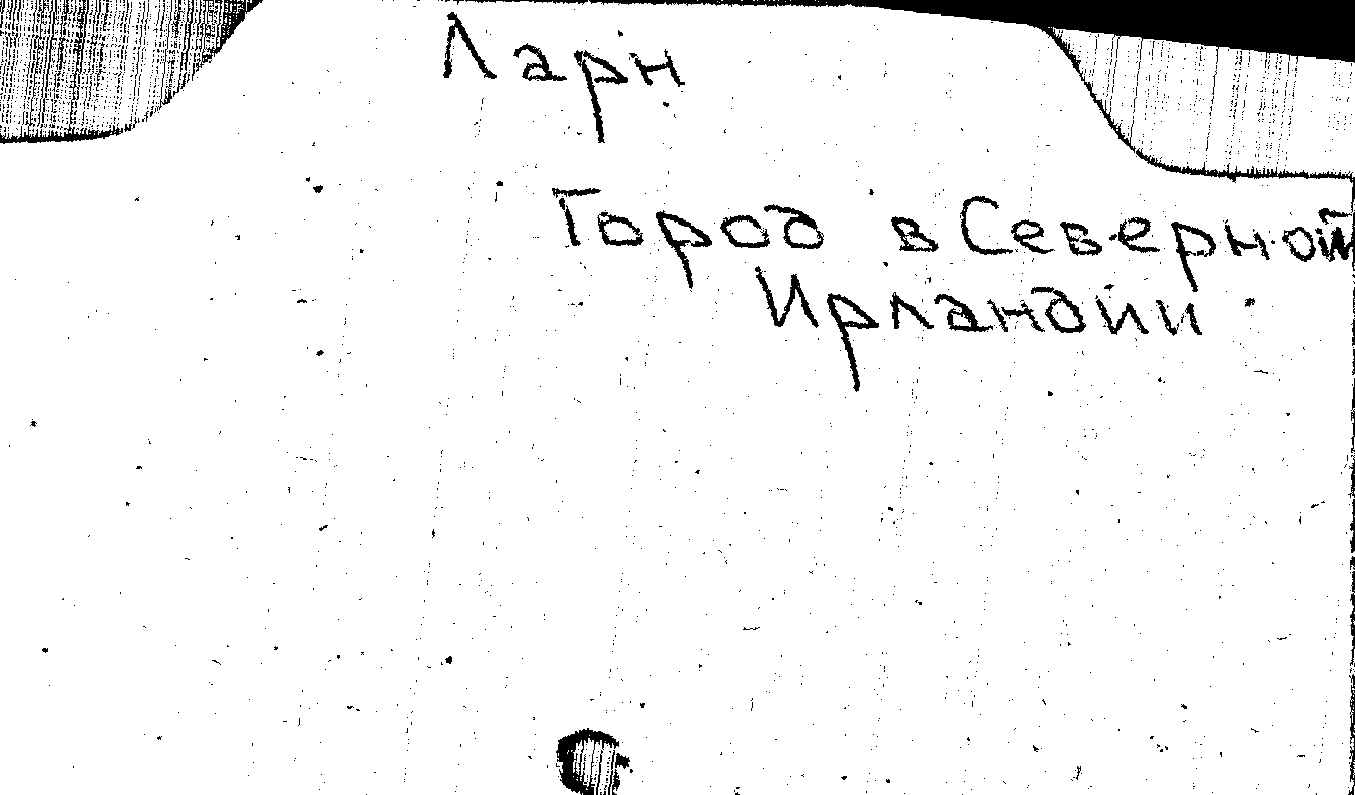 Ларн
Город в Северной
Ирландии